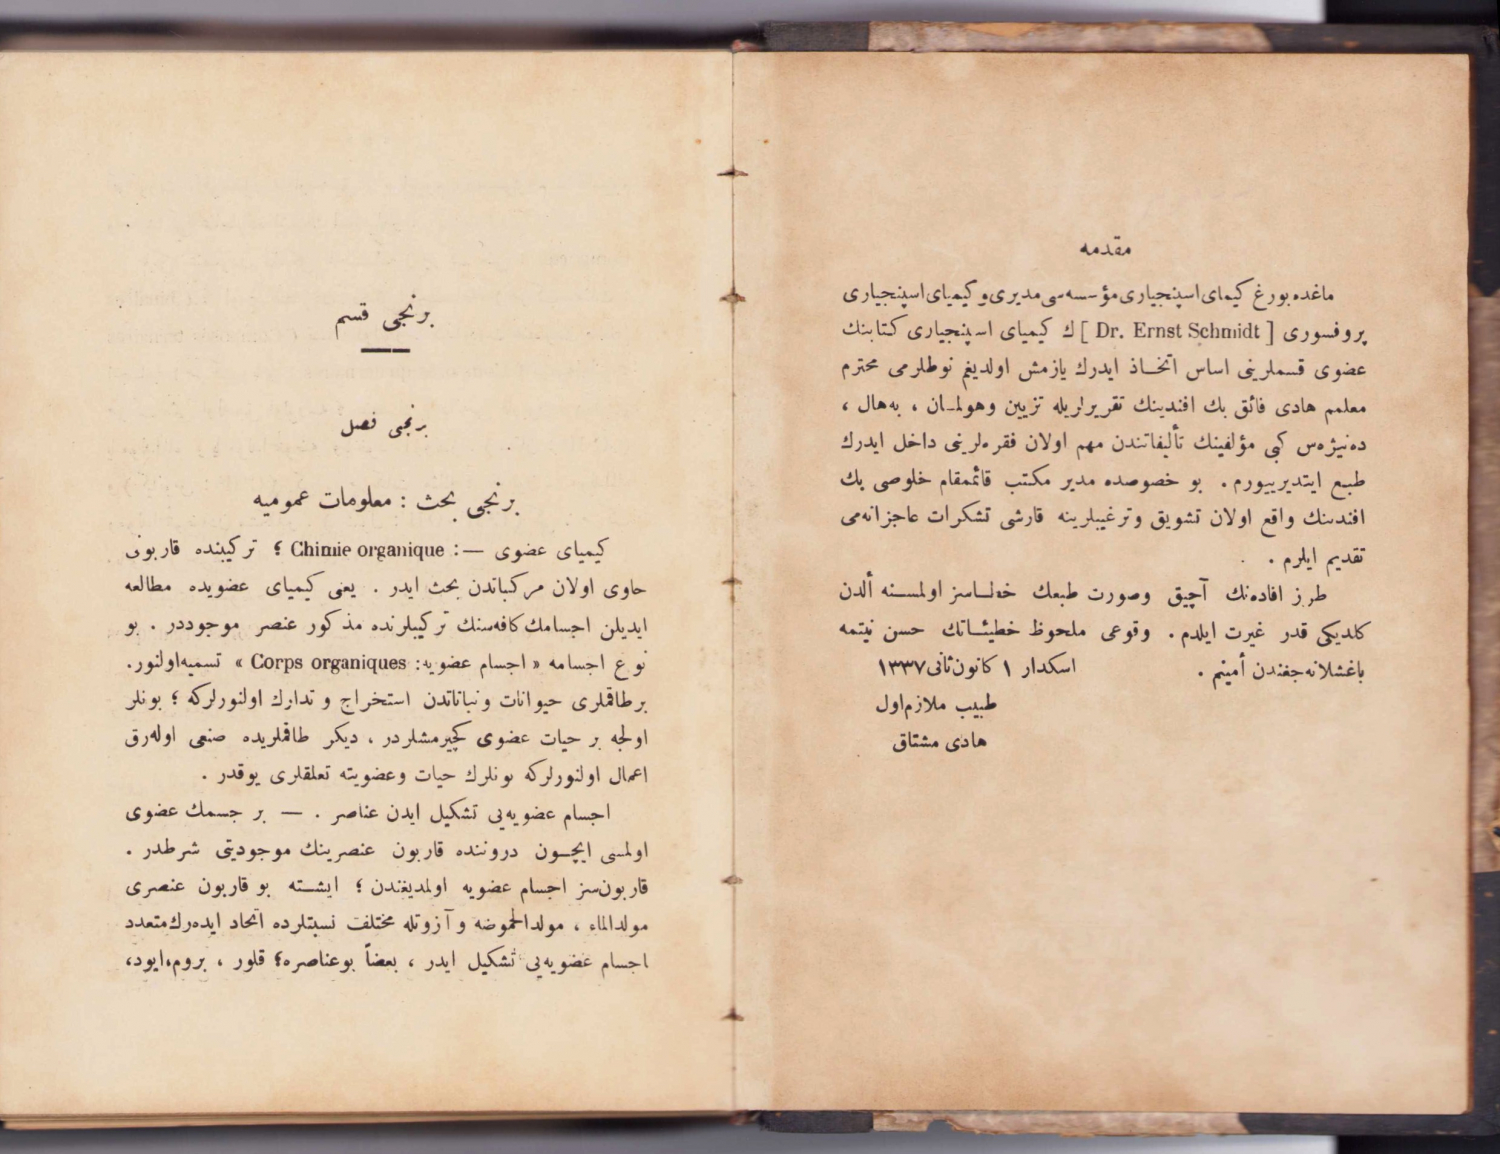 مقدمه
ماغده بورغ كیمیای اسپنجیاری مؤسسه‌سی مدیری و كیمیای اسپنجیاری
پروفسوری [ Dr. Ernst Schmidt ] ك كیمیای اسپنجیاری كتابنك
عضوی قسملرینی اساس اتخاذ ایدرك یازمش اولدیغم نوطلرمی محترم
معلمم هادی فائق بك افندینك تقریرلریله تزیین وهولمان ، به‌هال ،
ده‌نیژه‌س كبی مؤلفینك تألیفاتندن مهم اولان فقره‌لرینی داخل ایدرك
طبع ایتدیرییورم . بو خصوصده مدیر مكتب قائممقام خلوصی بك
افندینك واقع اولان تشویق وترغیبلرینه قارشی تشكرات عاجزانه‌می
تقدیم ایلرم .
طرز افاده‌نك آچیق وصورت طبعك خطاسز اولمسنه ألدن
كلدیكی قدر غیرت ایلدم . وقوعی ملحوظ خطیئاتك حسن نیتمه
باغشلانه‌جغندن أمینم . اسكدار ١ كانون ثانی ١٣٣٧
طبیب ملازم اول
هادی مشتاق
برنجی قسم
برنجی فصل
برنجی بحث : معلومات عمومیه
كیمیای عضوی —: Chimie organique ؛ تركیبنده قاربونی
حاوی اولان مركباتدن بحث ایدر . یعنی كیمیای عضویده مطالعه
ایدیلن اجسامك كافه‌سنك تركیبلرنده مذكور عنصر موجوددر . بو
نوع اجسامه « اجسام عضویه: Corps organiques » تسمیه اولنور.
برطاقملری حیوانات ونباتاتدن استخراج و تدارك اولنورلركه ؛ بونلر
اولجه بر حیات عضوی كچیرمشلردر ، دیكر طاقملریده صنعی اوله‌رق
اعمال اولنورلركه بونلرك حیات وعضویته تعلقلری یوقدر .
اجسام عضویه‌یی تشكیل ایدن عناصر . — بر جسمك عضوی
اولمسی ایچون دروننده قاربون عنصرینك موجودیتی شرطدر .
قاربون‌سز اجسام عضویه اولمدیغندن ؛ ایشته بو قاربون عنصری
مولدالماء ، مولدالحموضه و آزوتله مختلف نسبتلرده اتحاد ایده‌رك متعدد
اجسام عضویه‌یی تشكیل ایدر ، بعضاً بوعناصره؛ قلور ، بروم، ایود،